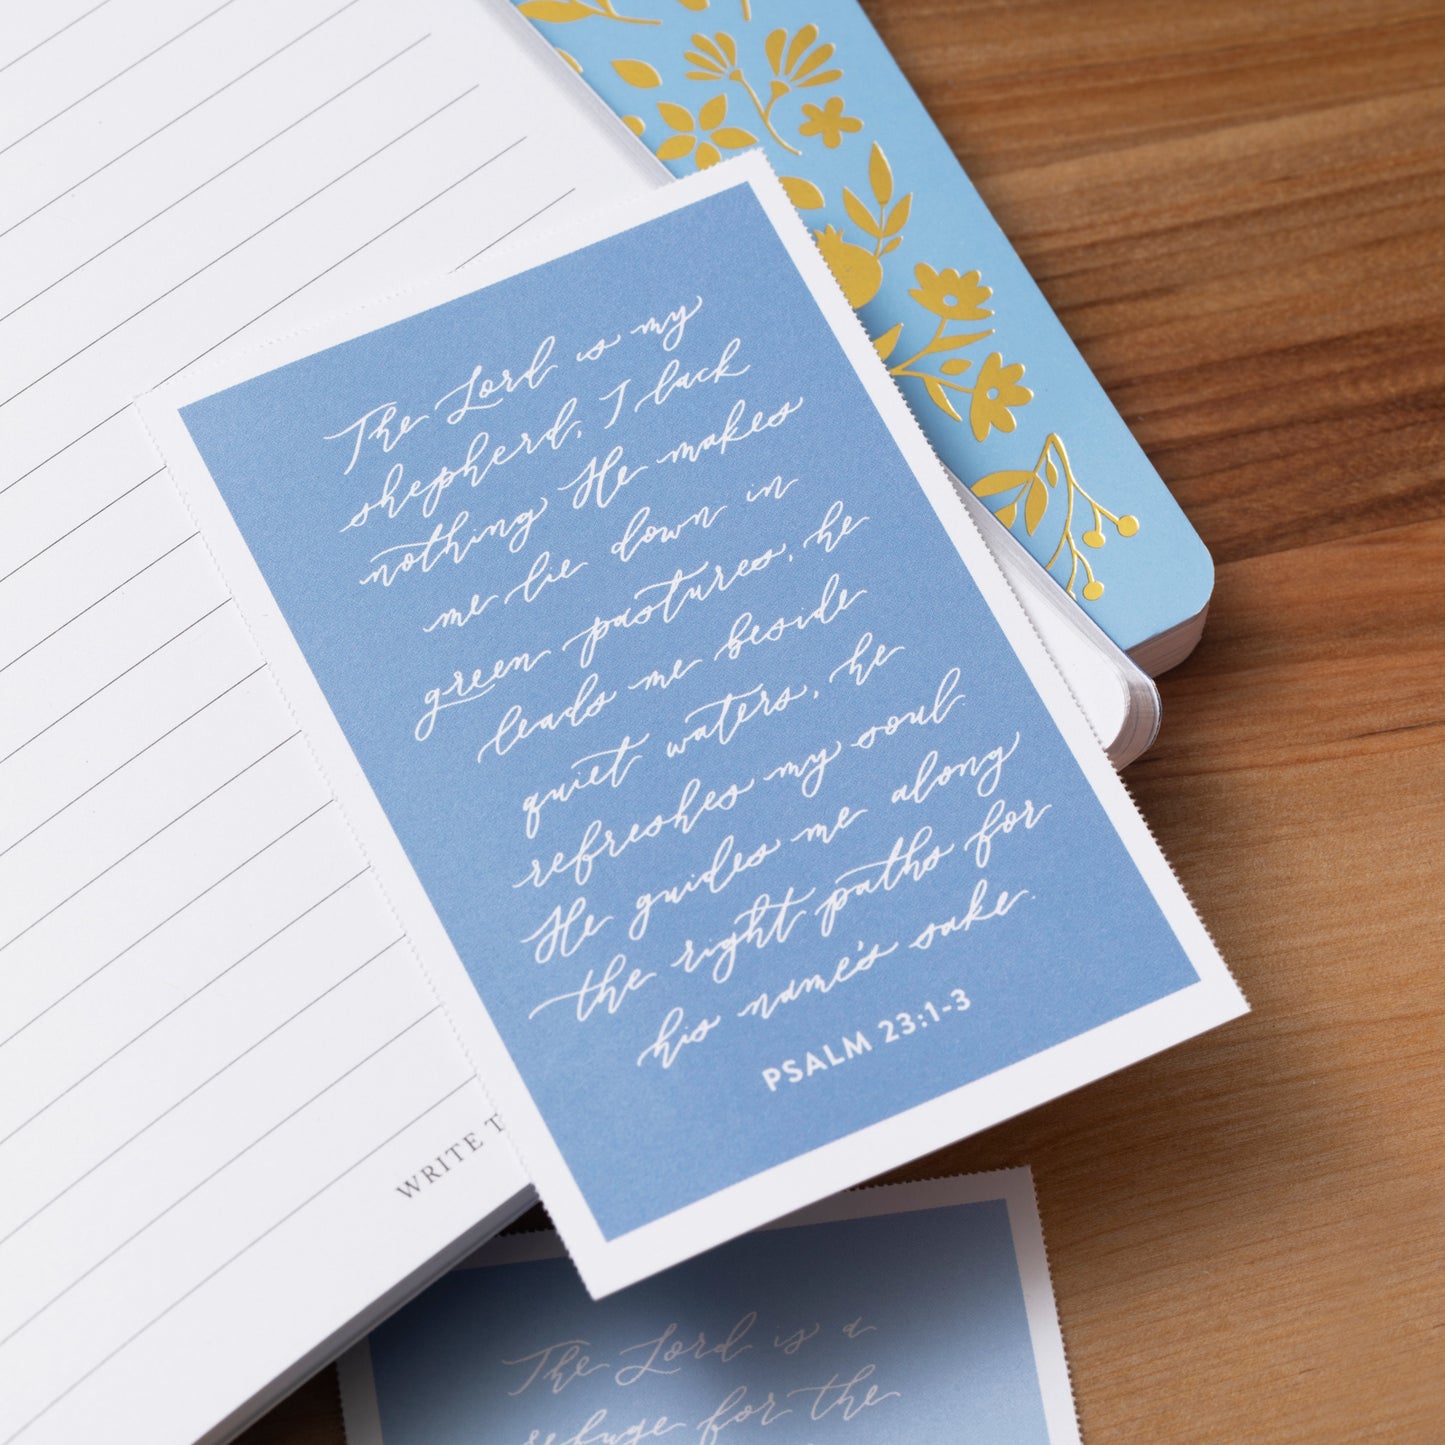 The Lord is my
shepherd, I lack
nothing He makes
me lie down in
green pastures, he
leads me beside
quiet waters, he
refreshes my soul.
He guides me along
the right paths for
his name's sake.
PSALM 23:1-3
WRITE T
The Lord is a
refuge for the